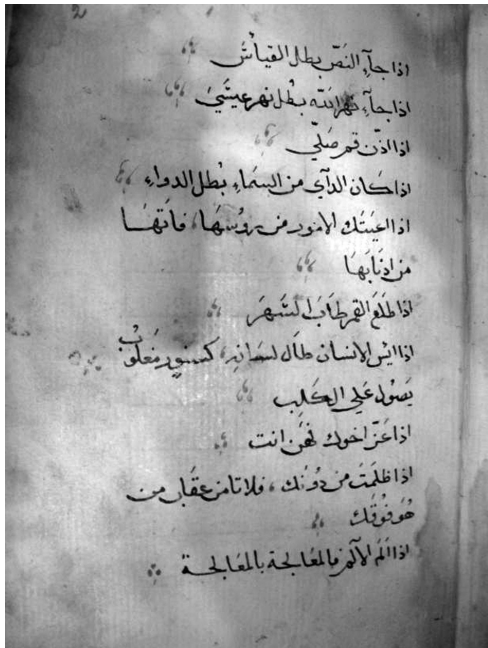 اذا جآء النصّ بطل القياسُ
اذا جآء نهر الله بطل نهر عيسَى
اذا اذّن قم صَلّي
اذا كان الدآي من السماءِ بطل الدواءِ
اذا اعيَتك الامور من روسهَا، فاتهَا
من اذنابهَا
اذا طلَعَ القمر طابَ السَّهَر
اذا ايس الانسان طال لسانه، كسنور مغلوب
يصُول علي الكلب
اذا عَزّ اخوك فهُن انت
اذا ظلمتَ من دُونك، فلا تامن عقاب من
هُو فوقك
اذا الم الالم فالمعالجة بالمعالجة